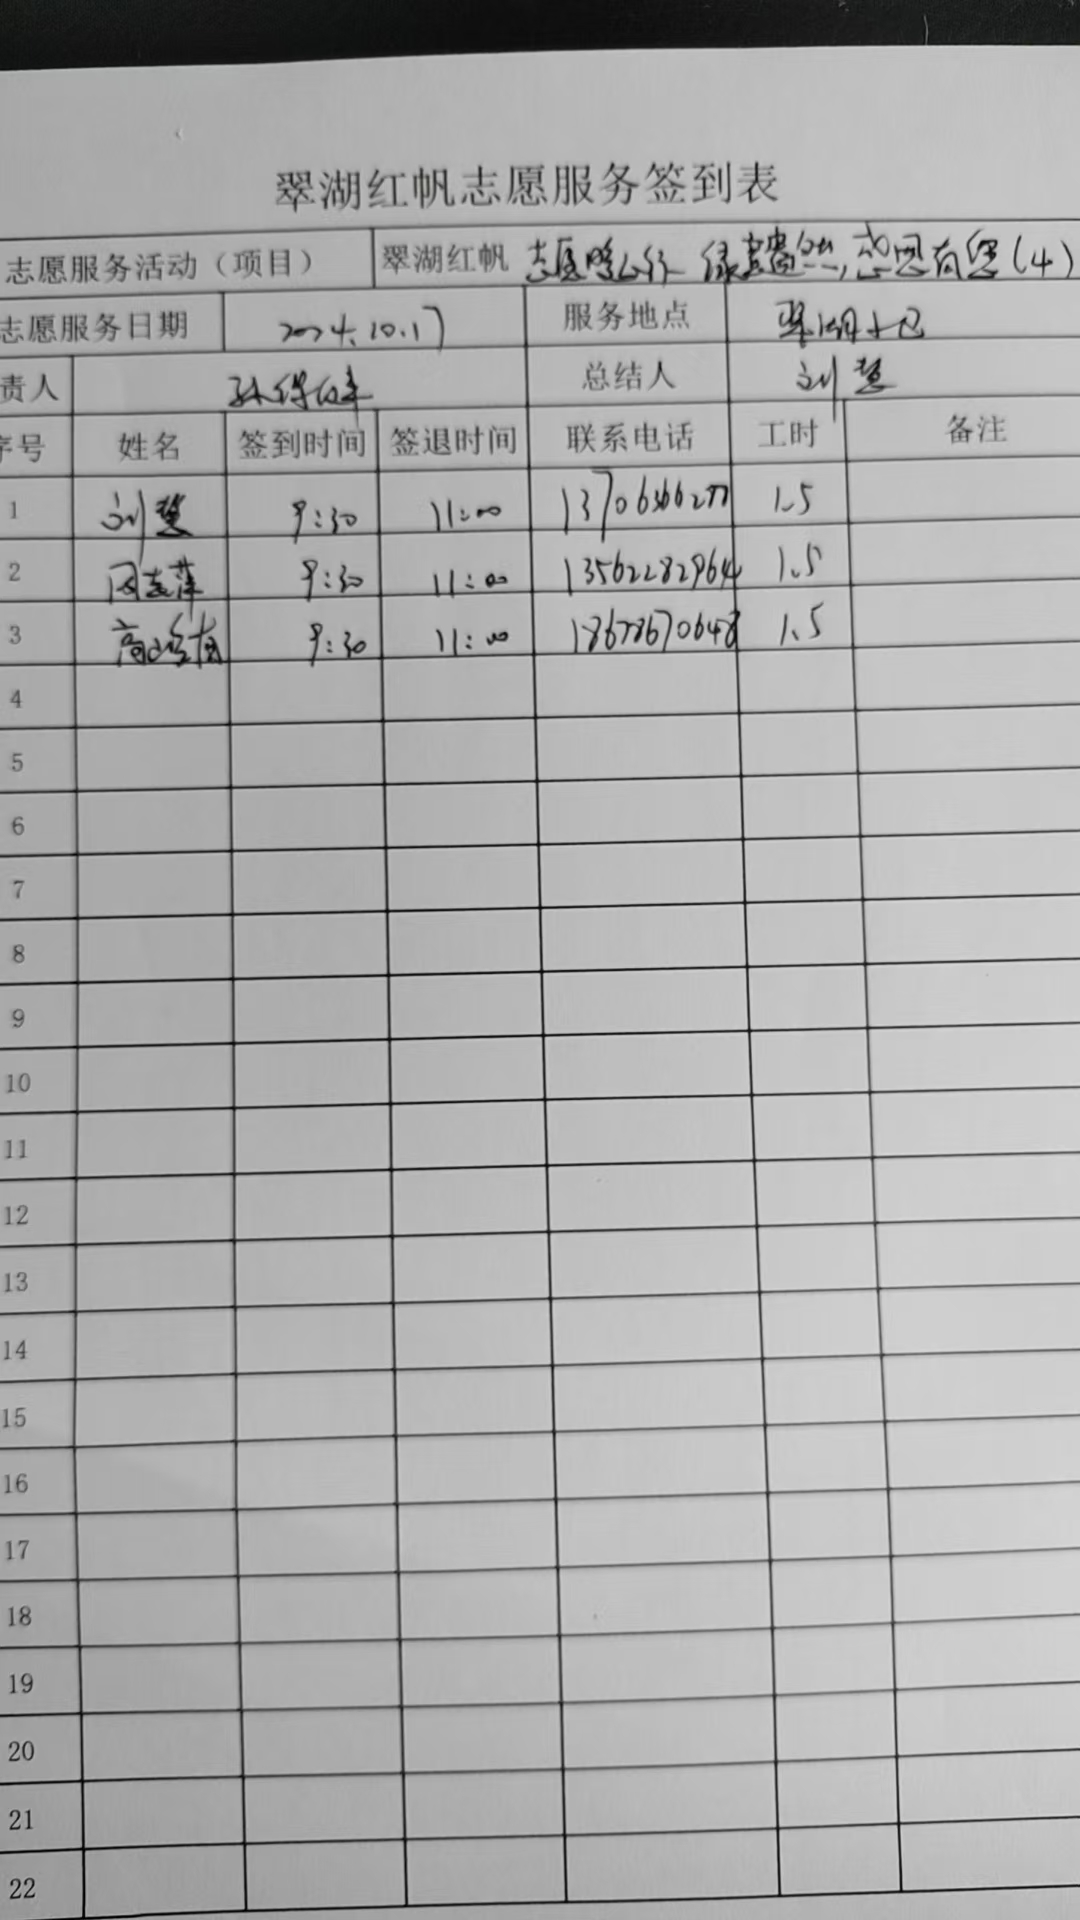 翠湖红帆志愿服务签到表
志愿服务活动（项目） 翠湖红帆 志愿 行 绿 自然,感恩有您(4)
志愿服务日期 2024.10.17 服务地点 翠湖小区
责人 孙 总结人 刘慧
序号 姓名 签到时间 签退时间 联系电话 工时 备注
1 刘慧 9:30 11:00 1.5
2 萍 9:30 11:00 13562282964 1.5
3 高 9:30 11:00 18678670648 1.5
4
5
6
7
8
9
10
11
12
13
14
15
16
17
18
19
20
21
22